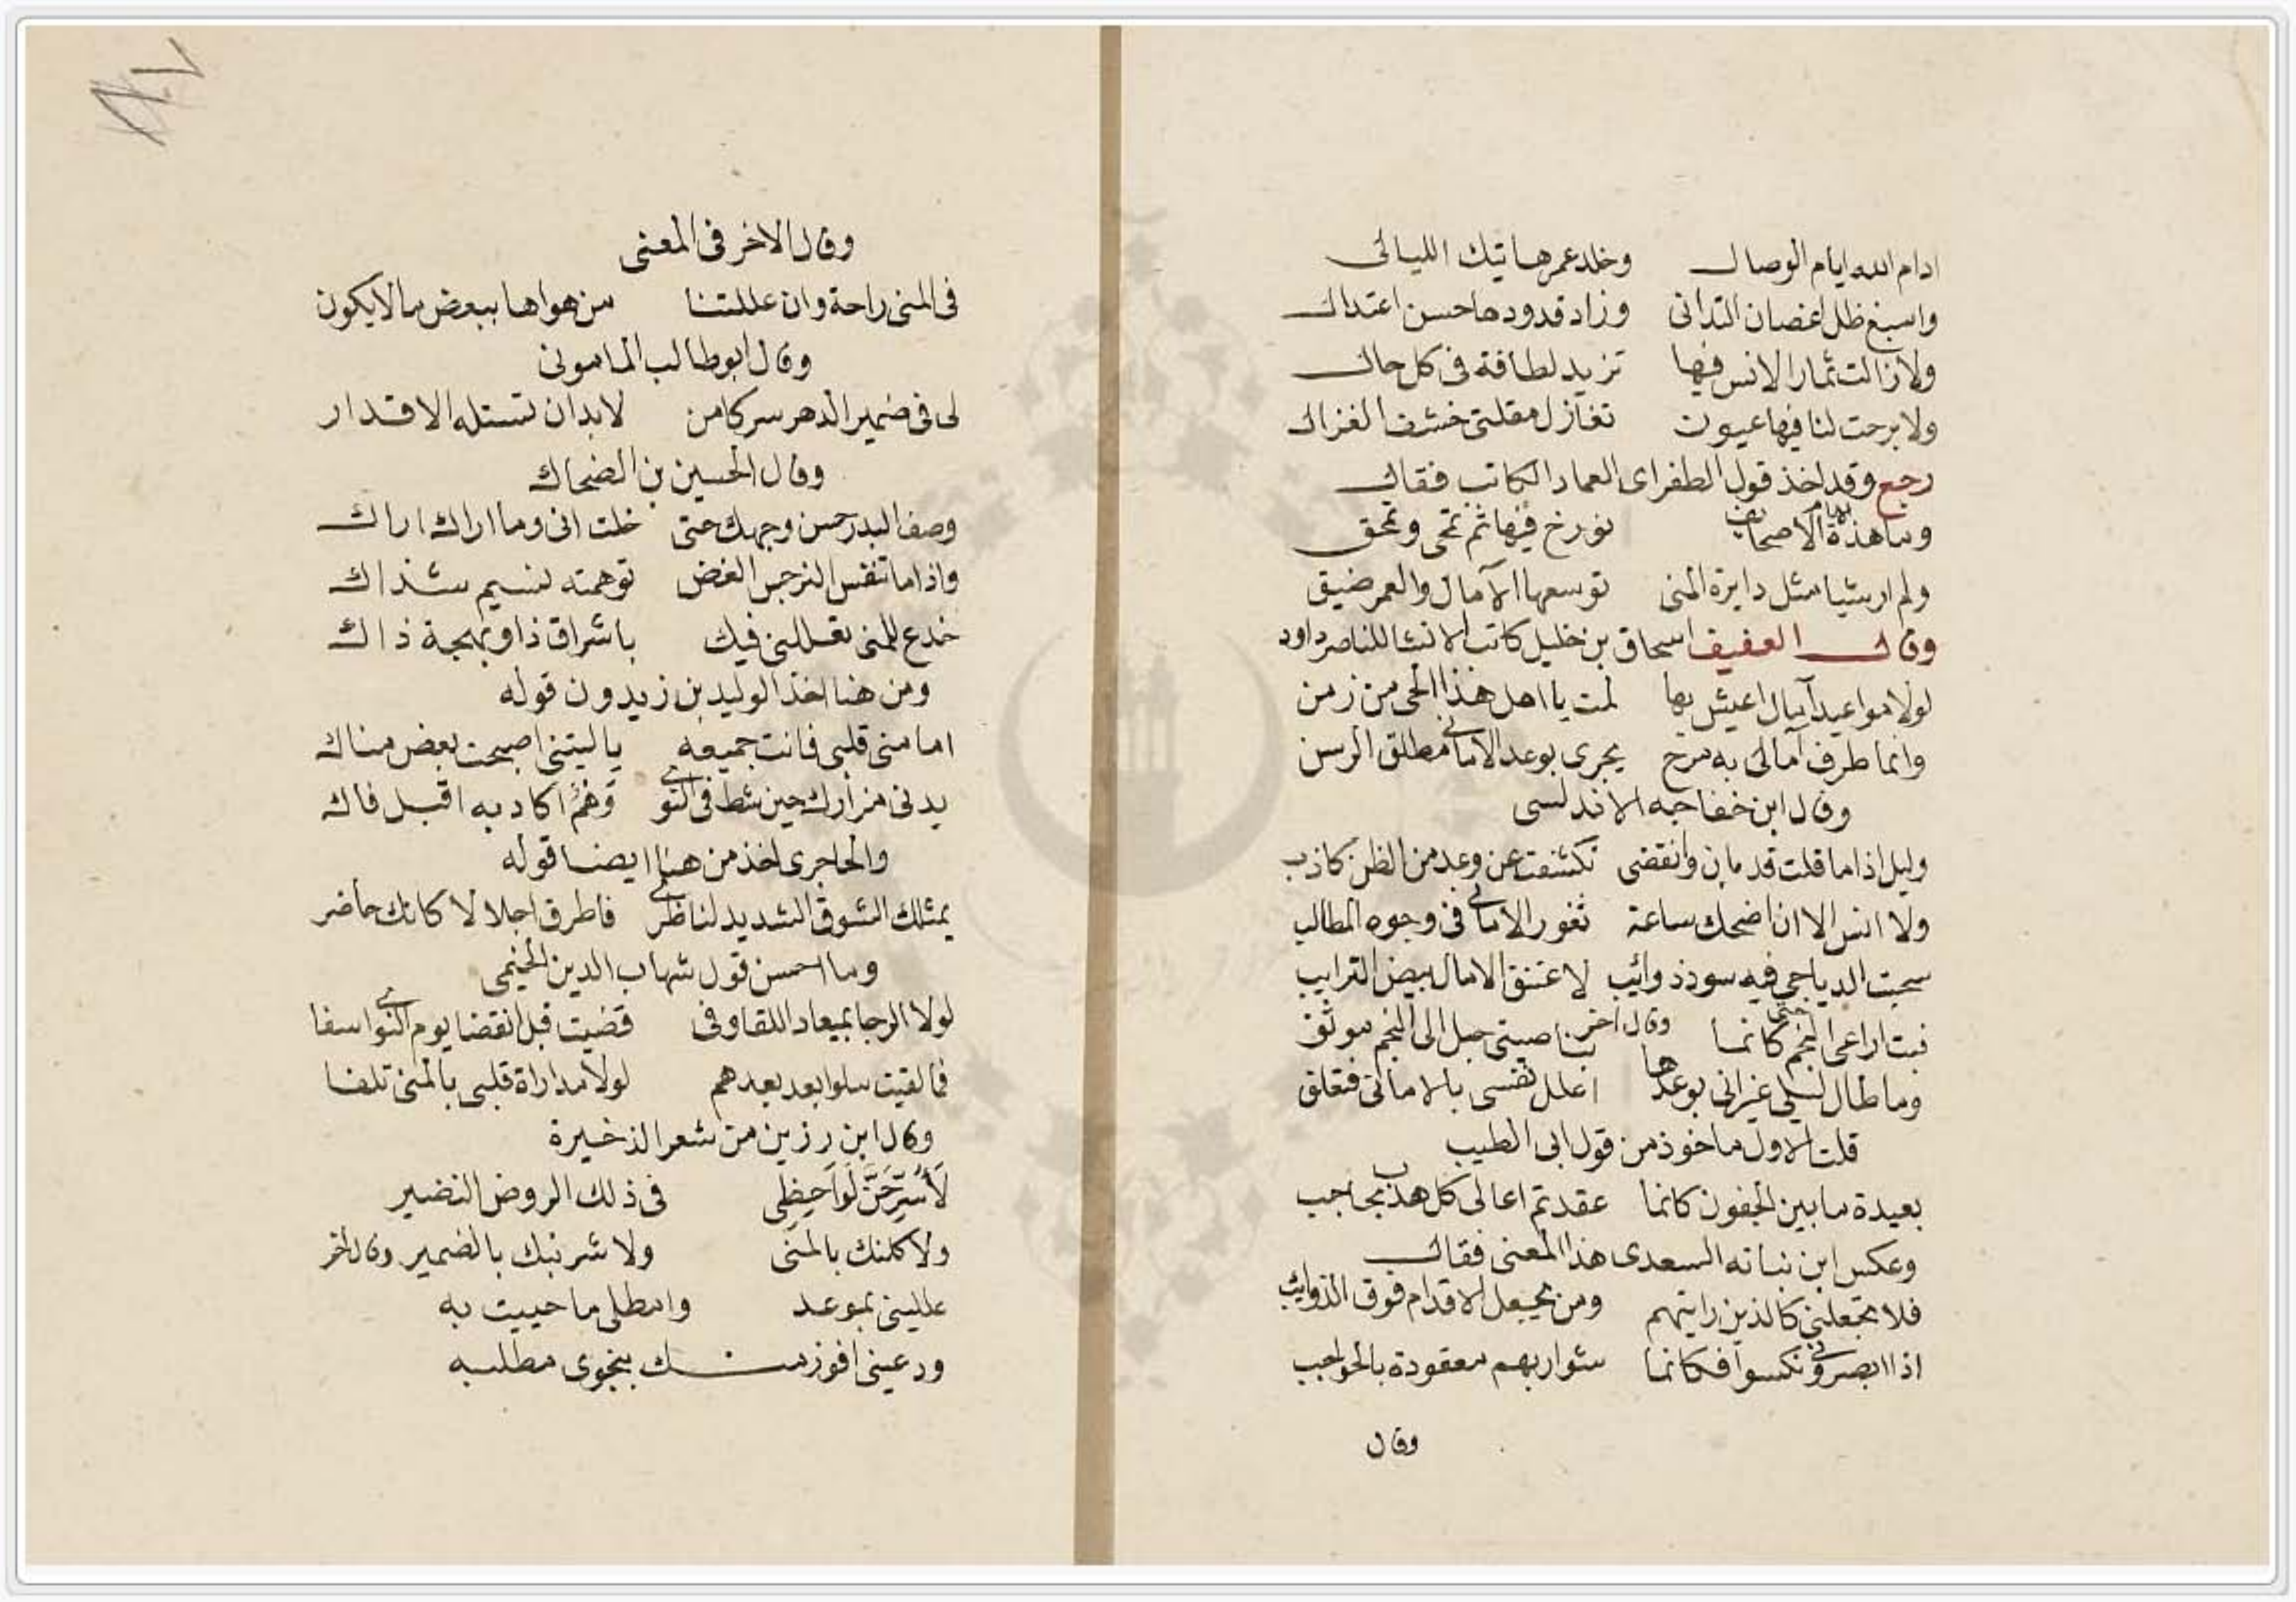 ادام الله ايام الوصال وخلد عمر هاتيك الليالى
واسبغ ظل اغصان التدانى وزاد قدودها حسن اعتدال
ولا زالت ثمار الانس فيها تزيد لطافة فى كل حال
ولا برحت لنا فيها عيون تغازل مقلتى خشف الغزال
رجع وقد اخذ قول الطغراى العماد الكاتب فقال
وما هذه الايام الا صحايف نورخ فيها ثم تمحى وتمحق
ولم ار شيا مثل دايرة المنى توسعها الآمال والعمر ضيق
وقال العفيف اسحاق بن خليل كاتب الانشا للناصر داود
لولا مواعيد آمال اعيش بها لمت يا اهل هذا الحى من زمن
وانما طرف آمالى به مرح يجرى بوعد الامانى مطلق الرسن
وقال ابن خفاجه الاندلسى
وليل اذا ما قلت قد بان وانقضى تكشفت عن وعد من الظن كاذب
ولا انس الا ان اضحك ساعة ثغور الامانى فى وجوه المطالب
سحبت الدياجى فيه سود ذوائب لاعتنق الامال بيض الترايب
وقال اخر
فبت اراعى النجم حتى كانما بناصيتى حبل الى النجم موثق
وما طال ليلى غير انى بوعدها اعلل نفسى بالامانى فتعلق
قلت الاول ماخوذ من قول ابى الطيب
بعيدة ما بين الجفون كانما عقدتم اعالى كل هدب بحاجب
وعكس ابن نباته السعدى هذا المعنى فقال
فلا تجعلنى كالذين رايتهم ومن يجعل الاقدام فوق الذوائب
اذا ابصرونى نكسوا فكانما شواربهم معقودة بالحواجب
وقال
وقال الاخر فى المعنى
فى المنى راحة وان عللتنا من هواها ببعض ما لا يكون
وقال ابو طالب المامونى
لى فى ضمير الدهر سر كامن لا بد ان تستله الاقدار
وقال الحسين بن الضحاك
وصف البدر حسن وجهك حتى خلت انى وما اراك اراك
واذا ما تنفس النرجس الغض توهمته نسيم شذاك
خدع للمنى تعللنى فيك باشراق ذا وبهجة ذاك
ومن هنا اخذ الوليد بن زيدون قوله
اما منى قلبى فانت جميعه يا ليتنى اصبحت بعض مناك
يدنى مزارك حين شط فى النوى وَهْمٌ اكاد به اقبل فاك
والحاجرى اخذ من هنا ايضا قوله
يمثلك الشوق الشديد لناظرى فاطرق اجلالا كانك حاضر
وما احسن قول شهاب الدين الخيمى
لولا الرجا بميعاد اللقا وفى قضيت قبل انقضا يوم النوى اسفا
فما لقيت سلوا بعد بعدهم لولا مداراة قلبى بالمنى تلفا
وقال ابن رزين من شعر الذخيرة
لَأُسَرِّحَنَّ لَوَاحِظِى فى ذلك الروض النضير
ولا كلنك بالمنى ولا شربنك بالضمير وقال اخر
علليني بموعد وامطلى ما حييت به
ودعينى افوز منك بنجوى مطلبه